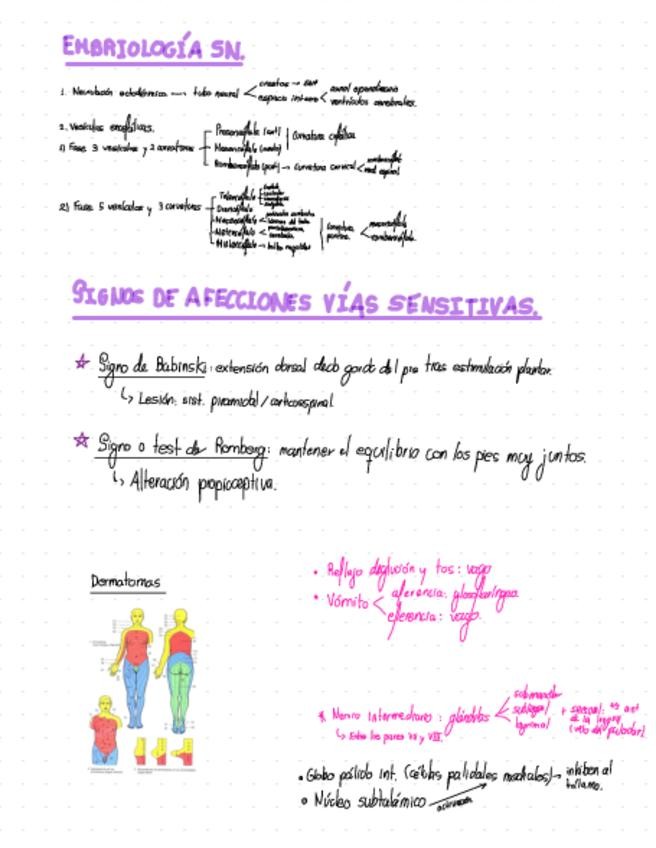 EMBRIOLOGÍA SN.
1. Neurulación ectodérmica → tubo neural
crestas → SNP
espacio interno
canal ependimario
ventrículos cerebrales.
2. Vesículas encefálicas.
1) Fase 3 vesículas y 2 curvaturas
Prosencéfalo (ant)
Mesencéfalo (medio)
Curvatura cefálica
Romboencéfalo (post) → curvatura cervical
2) Fase 5 vesículas y 3 curvaturas
Telencéfalo
Diencéfalo
Mesencéfalo
Metencéfalo
Mielencéfalo → bulbo raquídeo
SIGNOS DE AFECCIONES VÍAS SENSITIVAS.
☆ Signo de Babinski: extensión dorsal dedo gordo del pie tras estimulación plantar.
↳ Lesión: sist. piramidal / corticoespinal
☆ Signo o test de Romberg: mantener el equilibrio con los pies muy juntos.
↳ Alteración propioceptiva.
Dermatomas
• Reflejo deglución y tos: vago
• Vómito
aferencia: glosofaríngeo
eferencia: vago.
* Nervio intermediario: glándulas
submandibular
sublingual
lagrimal
+ sensorial:
de la lengua
↳ Entre los pares VII y VIII.
• Globo pálido int. (células palidales mediales) → inhiben al
tálamo.
• Núcleo subtalámico